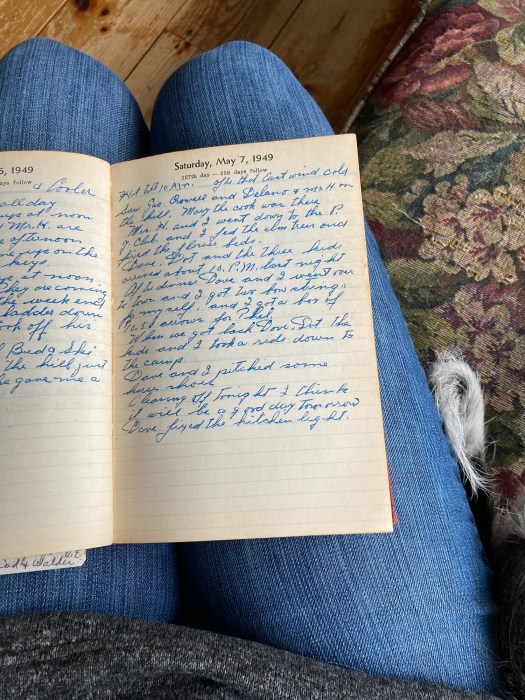 5, 1949
days follow
d Cooler
all day
ups at noon
Mrs. H. are
afternoon
on the
at noon
Sky are coming
the week end
ladder down
took off his
Bud & Ski
the hill just
he gave me a
Saturday, May 7, 1949
127th day — 238 days follow
till 10 A.m. of that East wind cold
Saw Geo. Crowell and Delano & Mr. H on
the hill. May the cook was there
Mrs. H. and I went down to the P.
Club and I fed the elm trees and
fixed the flower beds.
Dave, Dot and the three kids
arrived about 10. P.M. last night
After dinner Dave and I went over
to town and I got two
for myself, and I got a box of
arrows for
When we got back Dave, Dot the
kids and I took a ride down to
the camp.
Dave and I pitched some
horse shoes
Clearing off tonight I think
it will be a good day tomorrow
Dave fixed the kitchen light.